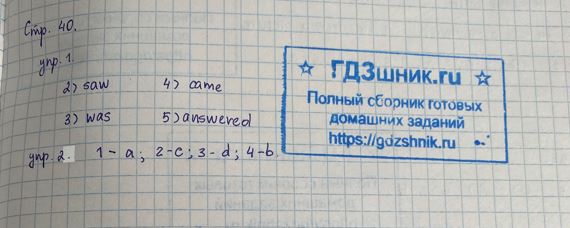 Стр. 40.
упр. 1.
2) saw 4) came
3) was 5) answered
упр. 2. 1 - a; 2-c; 3-d; 4-b.
☆ ГДЗшник.ru ☆
Полный сборник готовых
домашних заданий
https://gdzshnik.ru